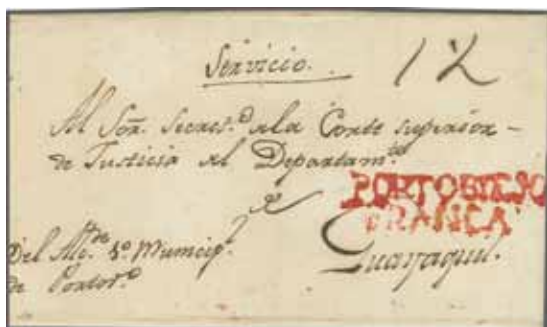 Servicio. 12
Al Sör. Secret.º de la Corte superior
de Justicia del Departam.to
de
PORTOBIEJO
FRANCA
Guayaquil.
Del Alc.de 1º Municip.l
de Portov.º